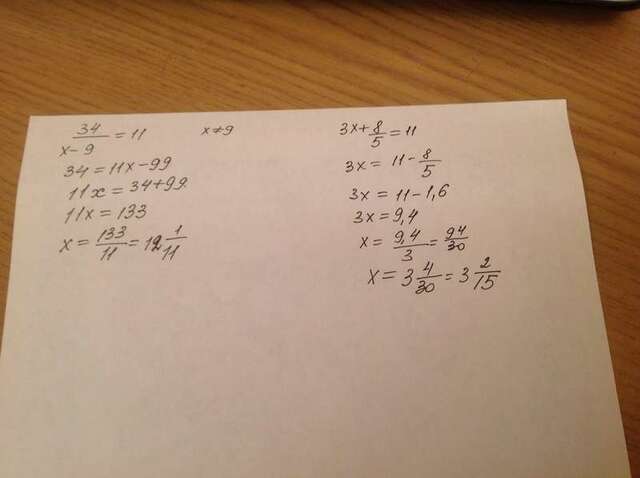 34/(x-9) = 11    x≠9
34 = 11x - 99
11x = 34 + 99
11x = 133
x = 133/11 = 12 1/11
3x + 8/5 = 11
3x = 11 - 8/5
3x = 11 - 1,6
3x = 9,4
x = 9,4/3 = 94/30
x = 3 4/30 = 3 2/15